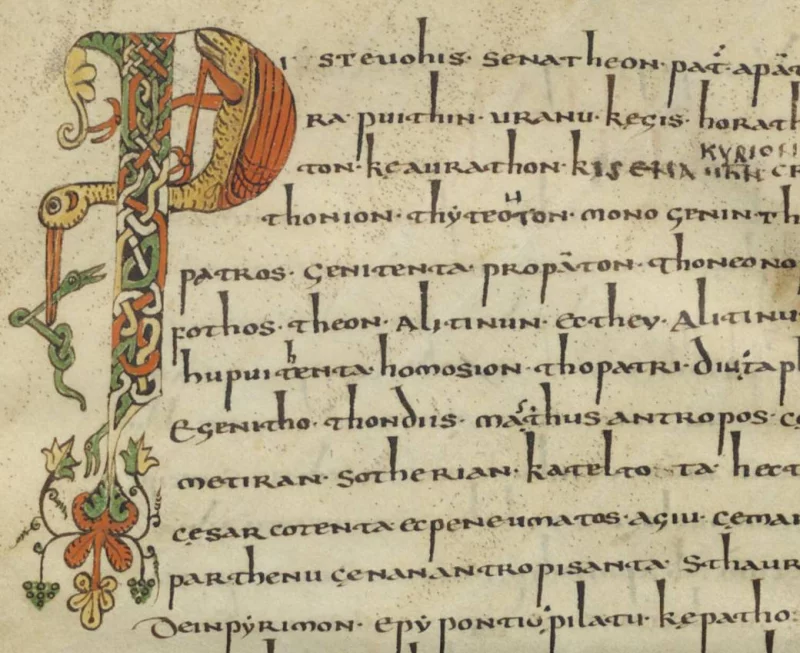 PISTEUO his · senatheon · pat̄ · apāt
ra · puithin · uranu · kęgis · horath
ton · keaurathon · kisena
KYRION
thonion · thẏteoton · mono genin · th
patros · genitenta · propāton · thoneono
fothos · theon · alitinun · ecthey · alitinu
hupuithenta homosion · thopatri · diuta ph
egenitho · thondiis · mathus antropos · ce
metiran · sotherian · katelto · ta · hect
cęsarcotenta ecpeneumatos · agiu · cęmar
parthenu cęnanantropisanta · Sthaur
deinpẏrimon · epẏ pontiu pilatu · kepatho: